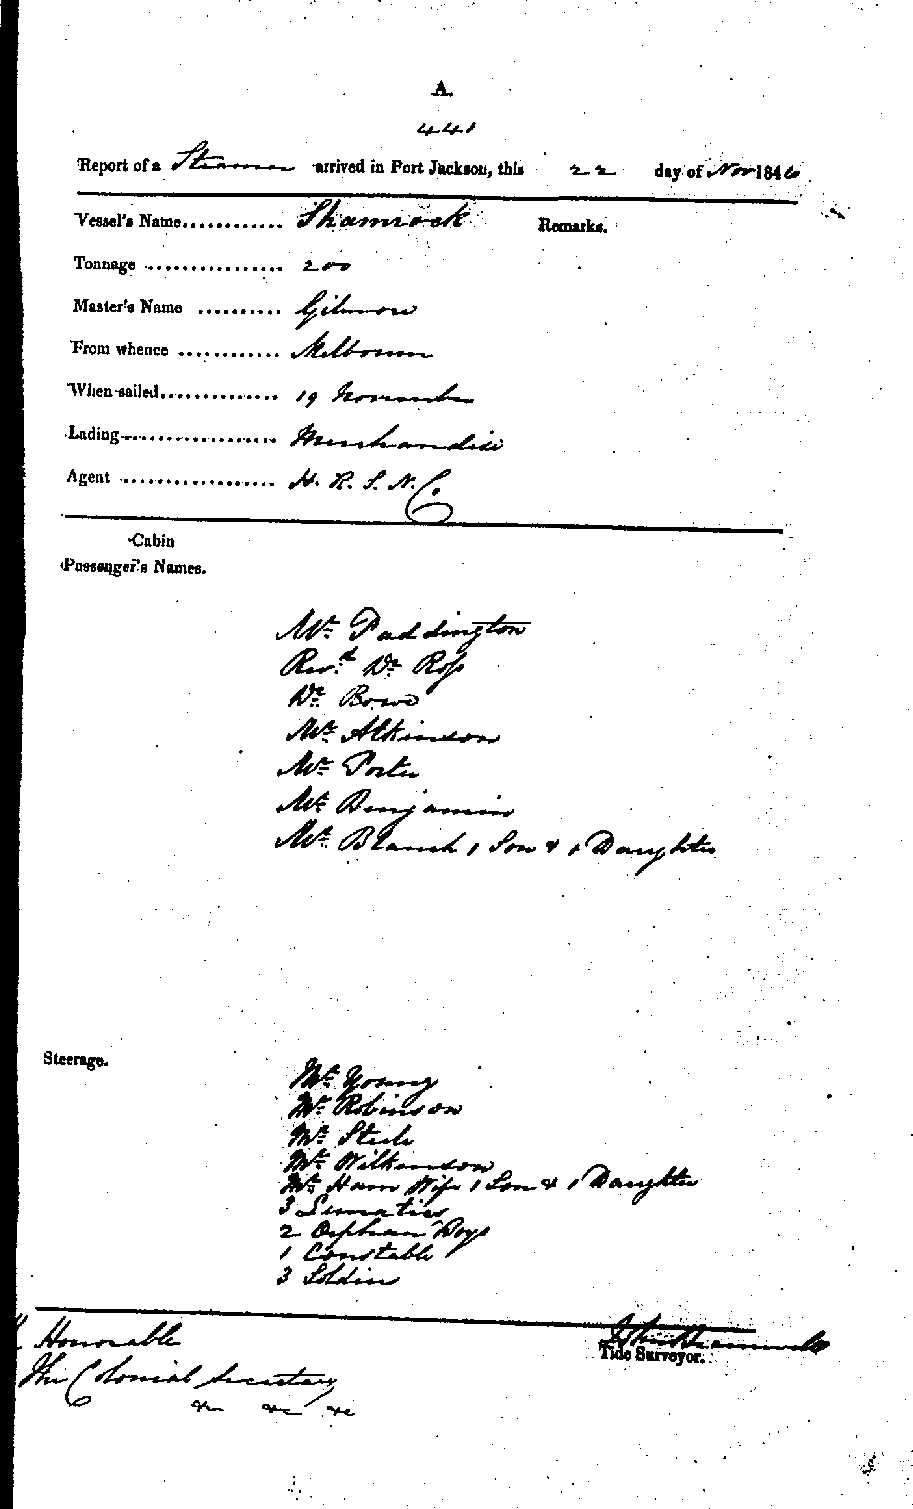 A.
441
Report of a Steamer arrived in Port Jackson, this 22 day of Nov 1846
Vessel's Name............ Shamrock Remarks.
Tonnage ................. 200
Master's Name .......... Gilmore
From whence ............ Melbourne
When sailed.............. 19 November
Lading................... Merchandise
Agent .................. H. R. S. N. Co.
Cabin
Passenger's Names.
Mr. Paddington
Revd. Dr. Ross
Dr. Bowe
Mr. Atkinson
Mr. Porter
Mr. Benjamin
Mr. Blanch 1 Son & 1 Daughter
Steerage.
Mr. Young
Mr. Robinson
Mr. Steele
Mr. Wilkinson
Mr. Ham Wife 1 Son & 1 Daughter
3 Lunatics
2 Orphan Boys
1 Constable
3 Soldiers
Honorable
The Colonial Secretary
&c &c &c
Tide Surveyor.